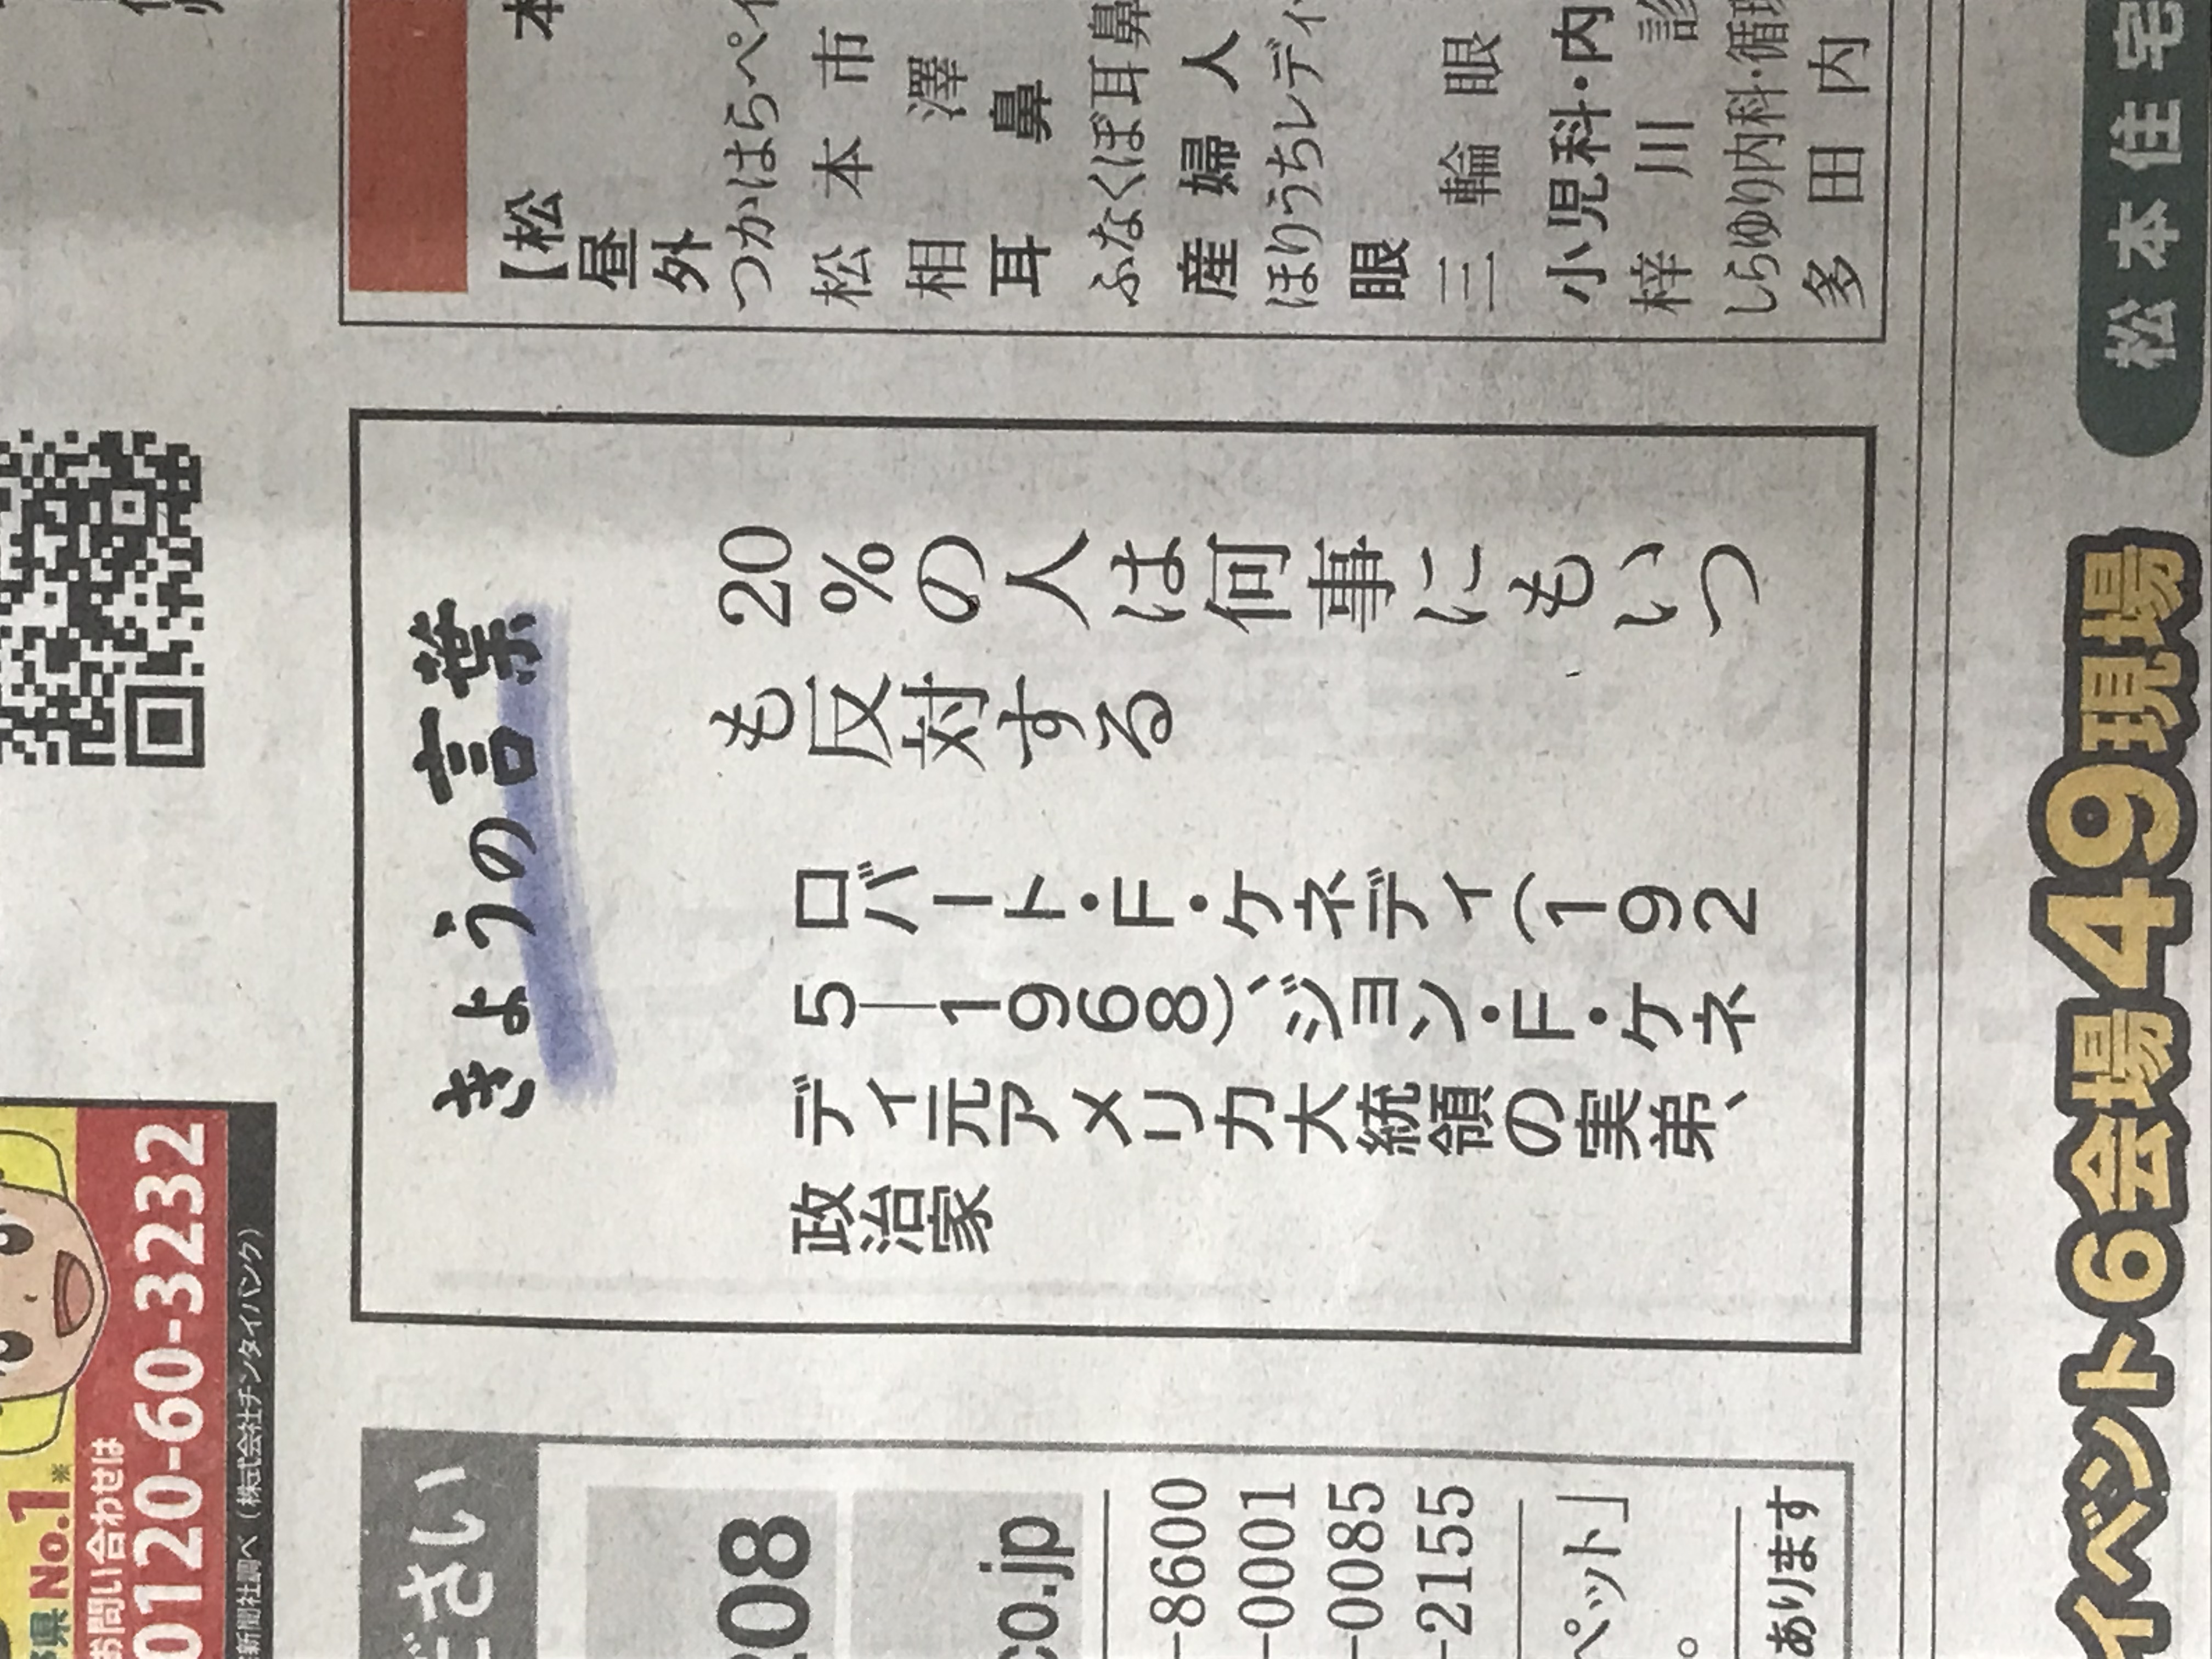 県No.1※
お問い合わせは
0120-60-3232
新聞社調べ（株式会社チンタイバンク）
きょうの言葉
20%の人は何事にもいつ
も反対する
ロバート・F・ケネディ(192
5―1968)、ジョン・F・ケネ
ディ元アメリカ大統領の実弟、
政治家
本
【松
昼
外
つかはらペイ
松本市
相澤
耳鼻
ふなくぼ耳鼻
産婦人
ほりうちレディ
眼
三輪眼
小児科・内
梓川診
しらゆり内科・循環
多田内
ださい
208
co.jp
-8600
-0001
-0085
-2155
ペット」
。
あります
松本住宅
イベント6会場49現場